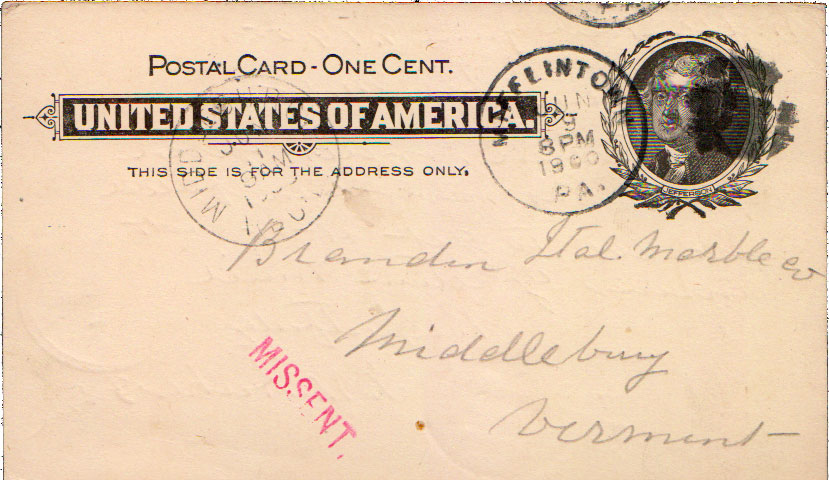 POSTAL CARD - ONE CENT.
UNITED STATES OF AMERICA.
THIS SIDE IS FOR THE ADDRESS ONLY.
MIFFLINTOWN
JUN
5
8 PM
1900
PA.
JEFFERSON
Brandon Ital. Marble co
Middlebury
Vermont
MISSENT.